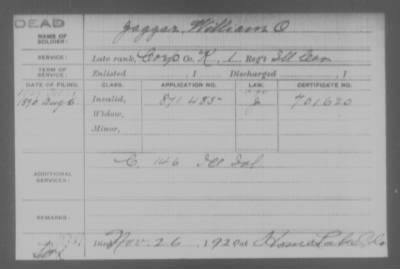 DEAD
NAME OF SOLDIER: Jaggar, William O
SERVICE: Late rank, Corp Co. K, 1 Reg't Ill Cav
TERM OF SERVICE: Enlisted , 1 Discharged , 1
DATE OF FILING. CLASS. APPLICATION NO. LAW. CERTIFICATE NO.
1890 Aug 6. Invalid, 871.485 701620
Widow,
Minor,
ADDITIONAL SERVICES: C. 146 Ill Inf.
REMARKS:
Died Nov. 26, 192 at Home Lake Colo